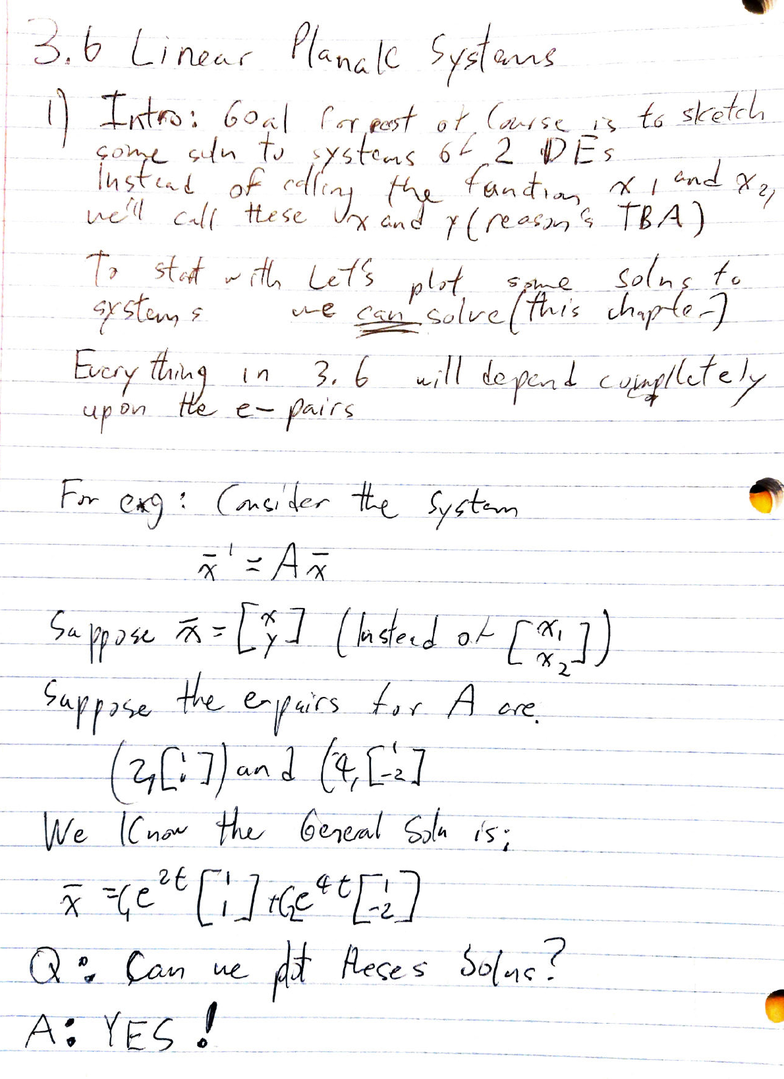 3.6 Linear Planale Systems
1) Intro: Goal for rest of Course is to sketch
some soln to systems of 2 DEs
Instead of calling the function x1 and x2,
we'll call these x and y (reason's TBA)
To start with Let's plot some solns to
systems we can solve (this chapter)
Everything in 3.6 will depend completely
upon the e-pairs
For exg: Consider the System
x̄' = A x̄
Suppose x̄ = [x y] (Instead of [x1 x2])
Suppose the e-pairs for A are.
(2, [1 1]) and (4, [1 -2]
We Know the General Soln is;
x̄ = C₁e^2t [1 1] + C₂e^4t [1 -2]
Q: Can we plot theses Solns?
A: YES!